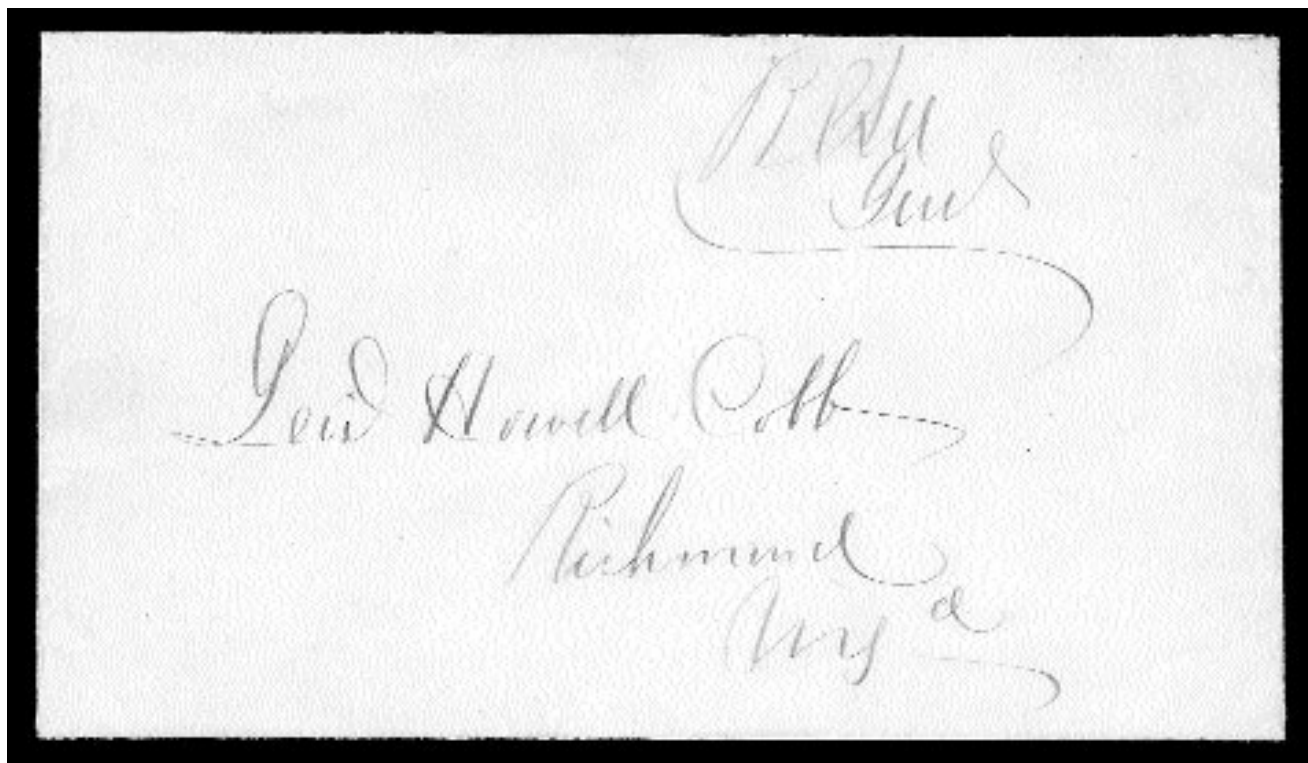 R E Lee
Genl
Genl Howell Cobb
Richmond
Virg a